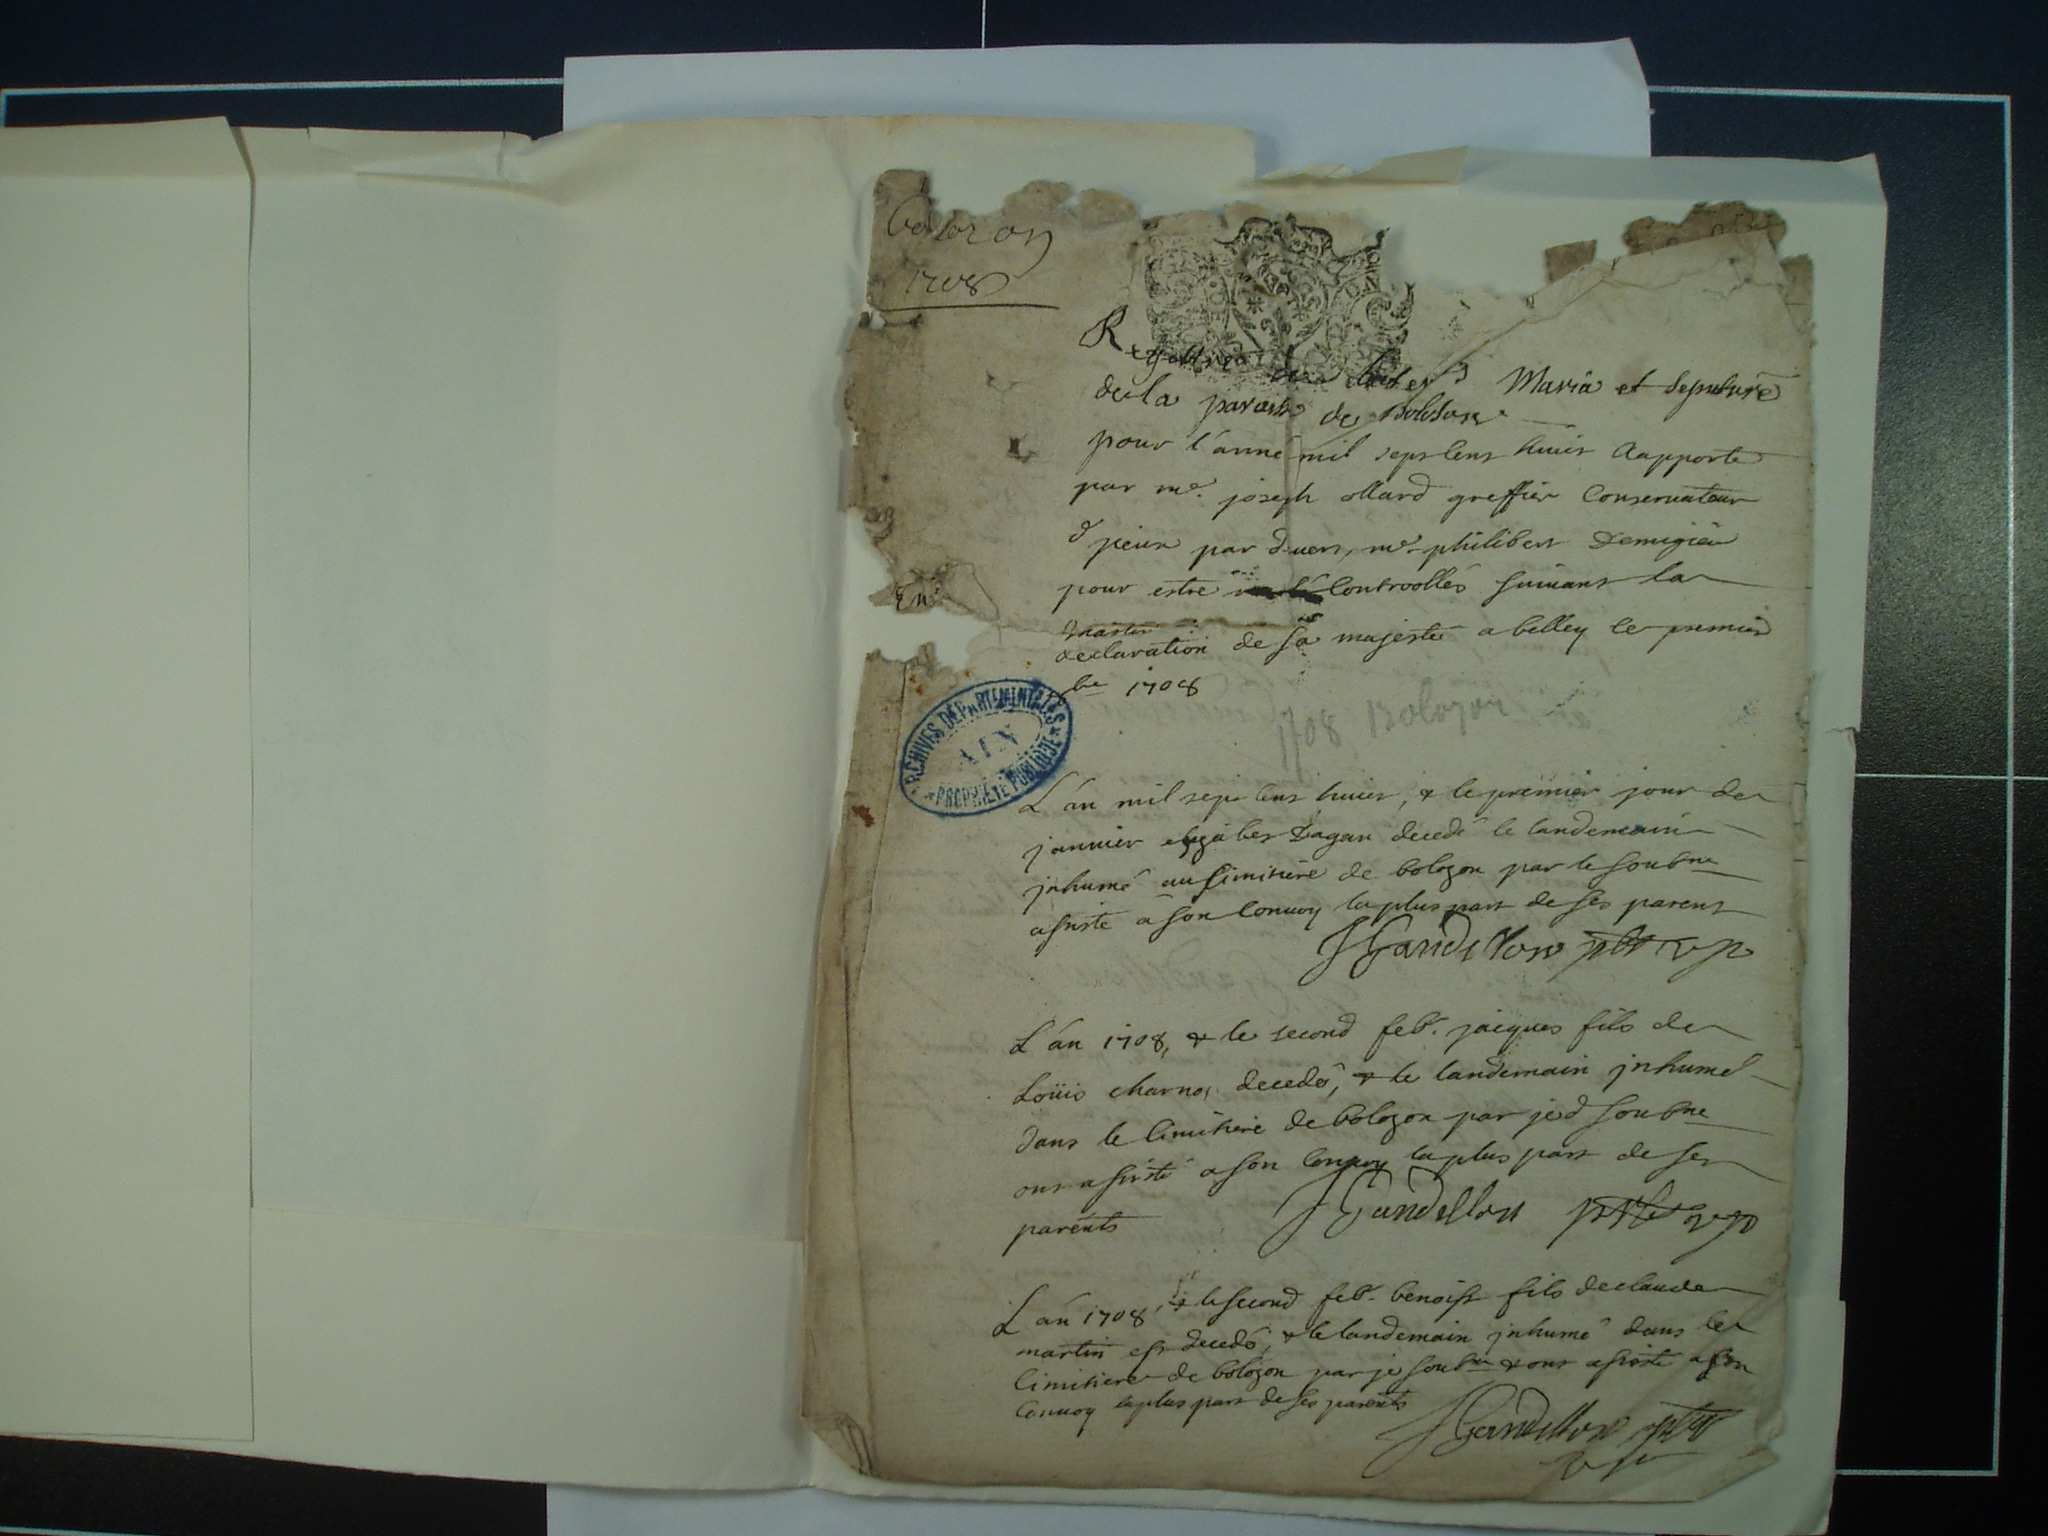 Bolozon
1708
Registre des Maria et Sepulture
de la paroisse de
pour l'anné mil sept cens huict Rapporté
par me. joseph ollard greffier Conservateur
par devers, me. philibert Demigieu
pour estre Controollés suivant la
declaration de sa majesté a belley le premier
bre 1708
1708 Bolozon
ARCHIVES DÉPARTEMENTALES
AIN
PROPRIÉTÉ PUBLIQUE
L'an mil sept cens huict, & le premier jour de
janvier decedé le landemain
jnhumé au simitiere de bolozon par le soubne
asisté a son convoy la plus part de ses parent
JGandillon pbt
L'an 1708, & le second feb. jacques fils de
Loüis decedé, & le landemain jnhumé
dans le cimitiere de bolozon par je soubne
ont asisté a son convoy la plus part de ses
parents JGandillon
L'an 1708, & le second feb. benoist fils de claude
martin est decedé, & le landemain jnhumé dans le
cimitiere de bolozon par je soubne & ont asisté a son
convoy la plus part de ses parents
JGandillon